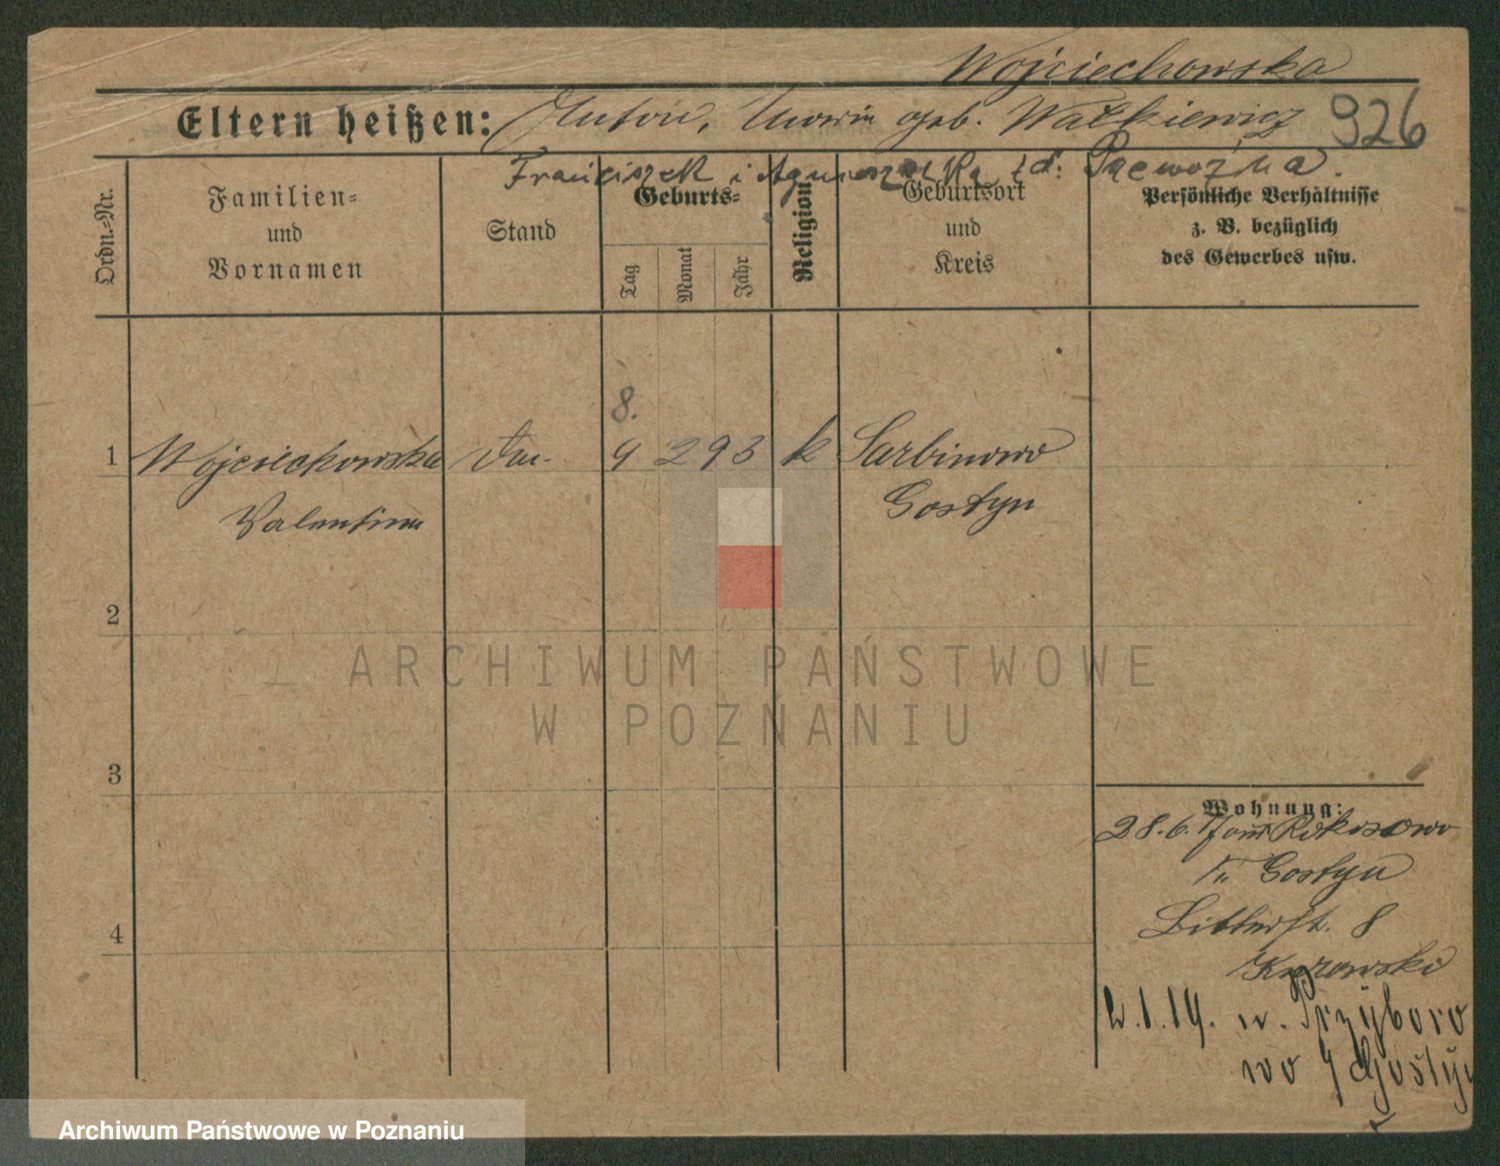 Wojciechowska
Eltern heißen: Anton, Maria geb. Walkiewicz 926
Franciszek i Agnieszka zd:
Ordn.-Nr.
Familien-
und
Vornamen
Stand
Geburts-
Tag
Monat
Jahr
Religion
Geburtsort
und
Kreis
Persönliche Verhältnisse
z. B. bezüglich
des Gewerbes usw.
8.
1 Wojciechowska 9 2 93 k Sarbinowo
Valentina Gostyn
2
3
4
Wohnung:
28.6.
Gostyn
8
Kurowski
2.1.19. w. Przyboro
wo Gostyń
ARCHIWUM PAŃSTWOWE
W POZNANIU
Archiwum Państwowe w Poznaniu